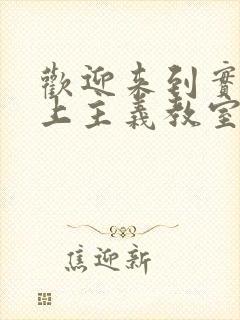 歡迎來到實
上主義教室
焦迎新